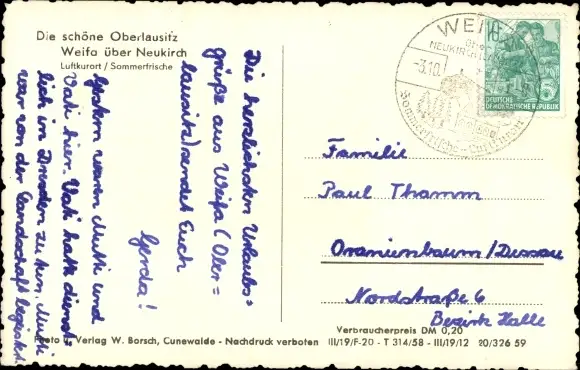 Die schöne Oberlausitz
Weifa über Neukirch
Luftkurort / Sommerfrische
Die herzlichsten Urlaubs=
grüße aus Weifa (Ober=
lausitz) sendet Euch
Gerda!
Gestern waren Mutti und
Vati hier. Vati hatte dienst-
lich in Dresden zu tun. Mutti
war von der Landschaft begeistert.
WEIFA
NEUKIRCH
-3.10.
Sommerfrische - Luftkurort
10
5
DEUTSCHE
DEMOKRATISCHE REPUBLIK
Familie
Paul Thamm
Oranienbaum/Dessau
Nordstraße 6
Bezirk Halle
Verbraucherpreis DM 0,20
Photo u. Verlag W. Borsch, Cunewalde - Nachdruck verboten III/19/F-20 - T 314/58 - III/19/12 20/326 59